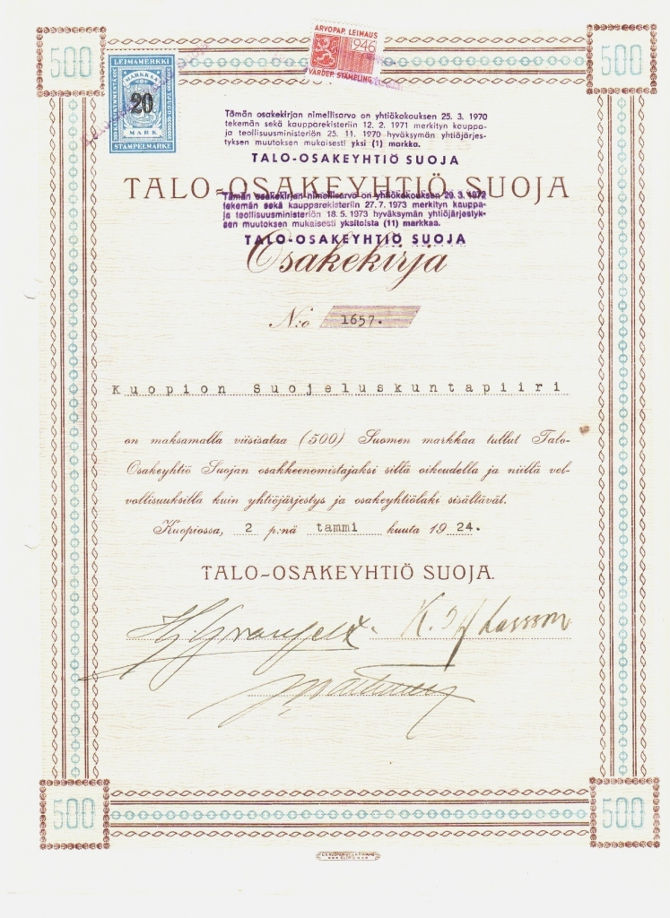 500
LEIMAMERKKI
MARKKAA
20
MARK
STAMPELMARKE
ARVOPAP. LEIMAUS
1946
VÄRDEP. STÄMPLING
500
Tämän osakekirjan nimellisarvo on yhtiökokouksen 25. 3. 1970
tekemän sekä kaupparekisteriin 12. 2. 1971 merkityn kauppa-
ja teollisuusministeriön 25. 11. 1970 hyväksymän yhtiöjärjes-
tyksen muutoksen mukaisesti yksi (1) markka.
TALO-OSAKEYHTIÖ SUOJA
TALO-OSAKEYHTIÖ SUOJA
Tämän osakekirjan nimellisarvo on yhtiökokouksen 29. 3. 1972
tekemän sekä kaupparekisteriin 27. 7. 1973 merkityn kauppa-
ja teollisuusministeriön 18. 5. 1973 hyväksymän yhtiöjärjestyk-
sen muutoksen mukaisesti yksitoista (11) markkaa.
TALO-OSAKEYHTIÖ SUOJA
Osakekirja
N:o 1657.
Kuopion Suojeluskuntapiiri
on maksamalla viisisataa (500) Suomen markkaa tullut Talo-
Osakeyhtiö Suojan osakkeenomistajaksi sillä oikeudella ja niillä vel-
vollisuuksilla kuin yhtiöjärjestys ja osakeyhtiölaki sisältävät.
Kuopiossa, 2 p:nä tammi kuuta 1924.
TALO-OSAKEYHTIÖ SUOJA.
500
500